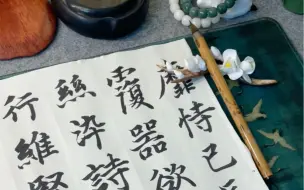 靡恃己
覆器欲
絲染詩
行維賢